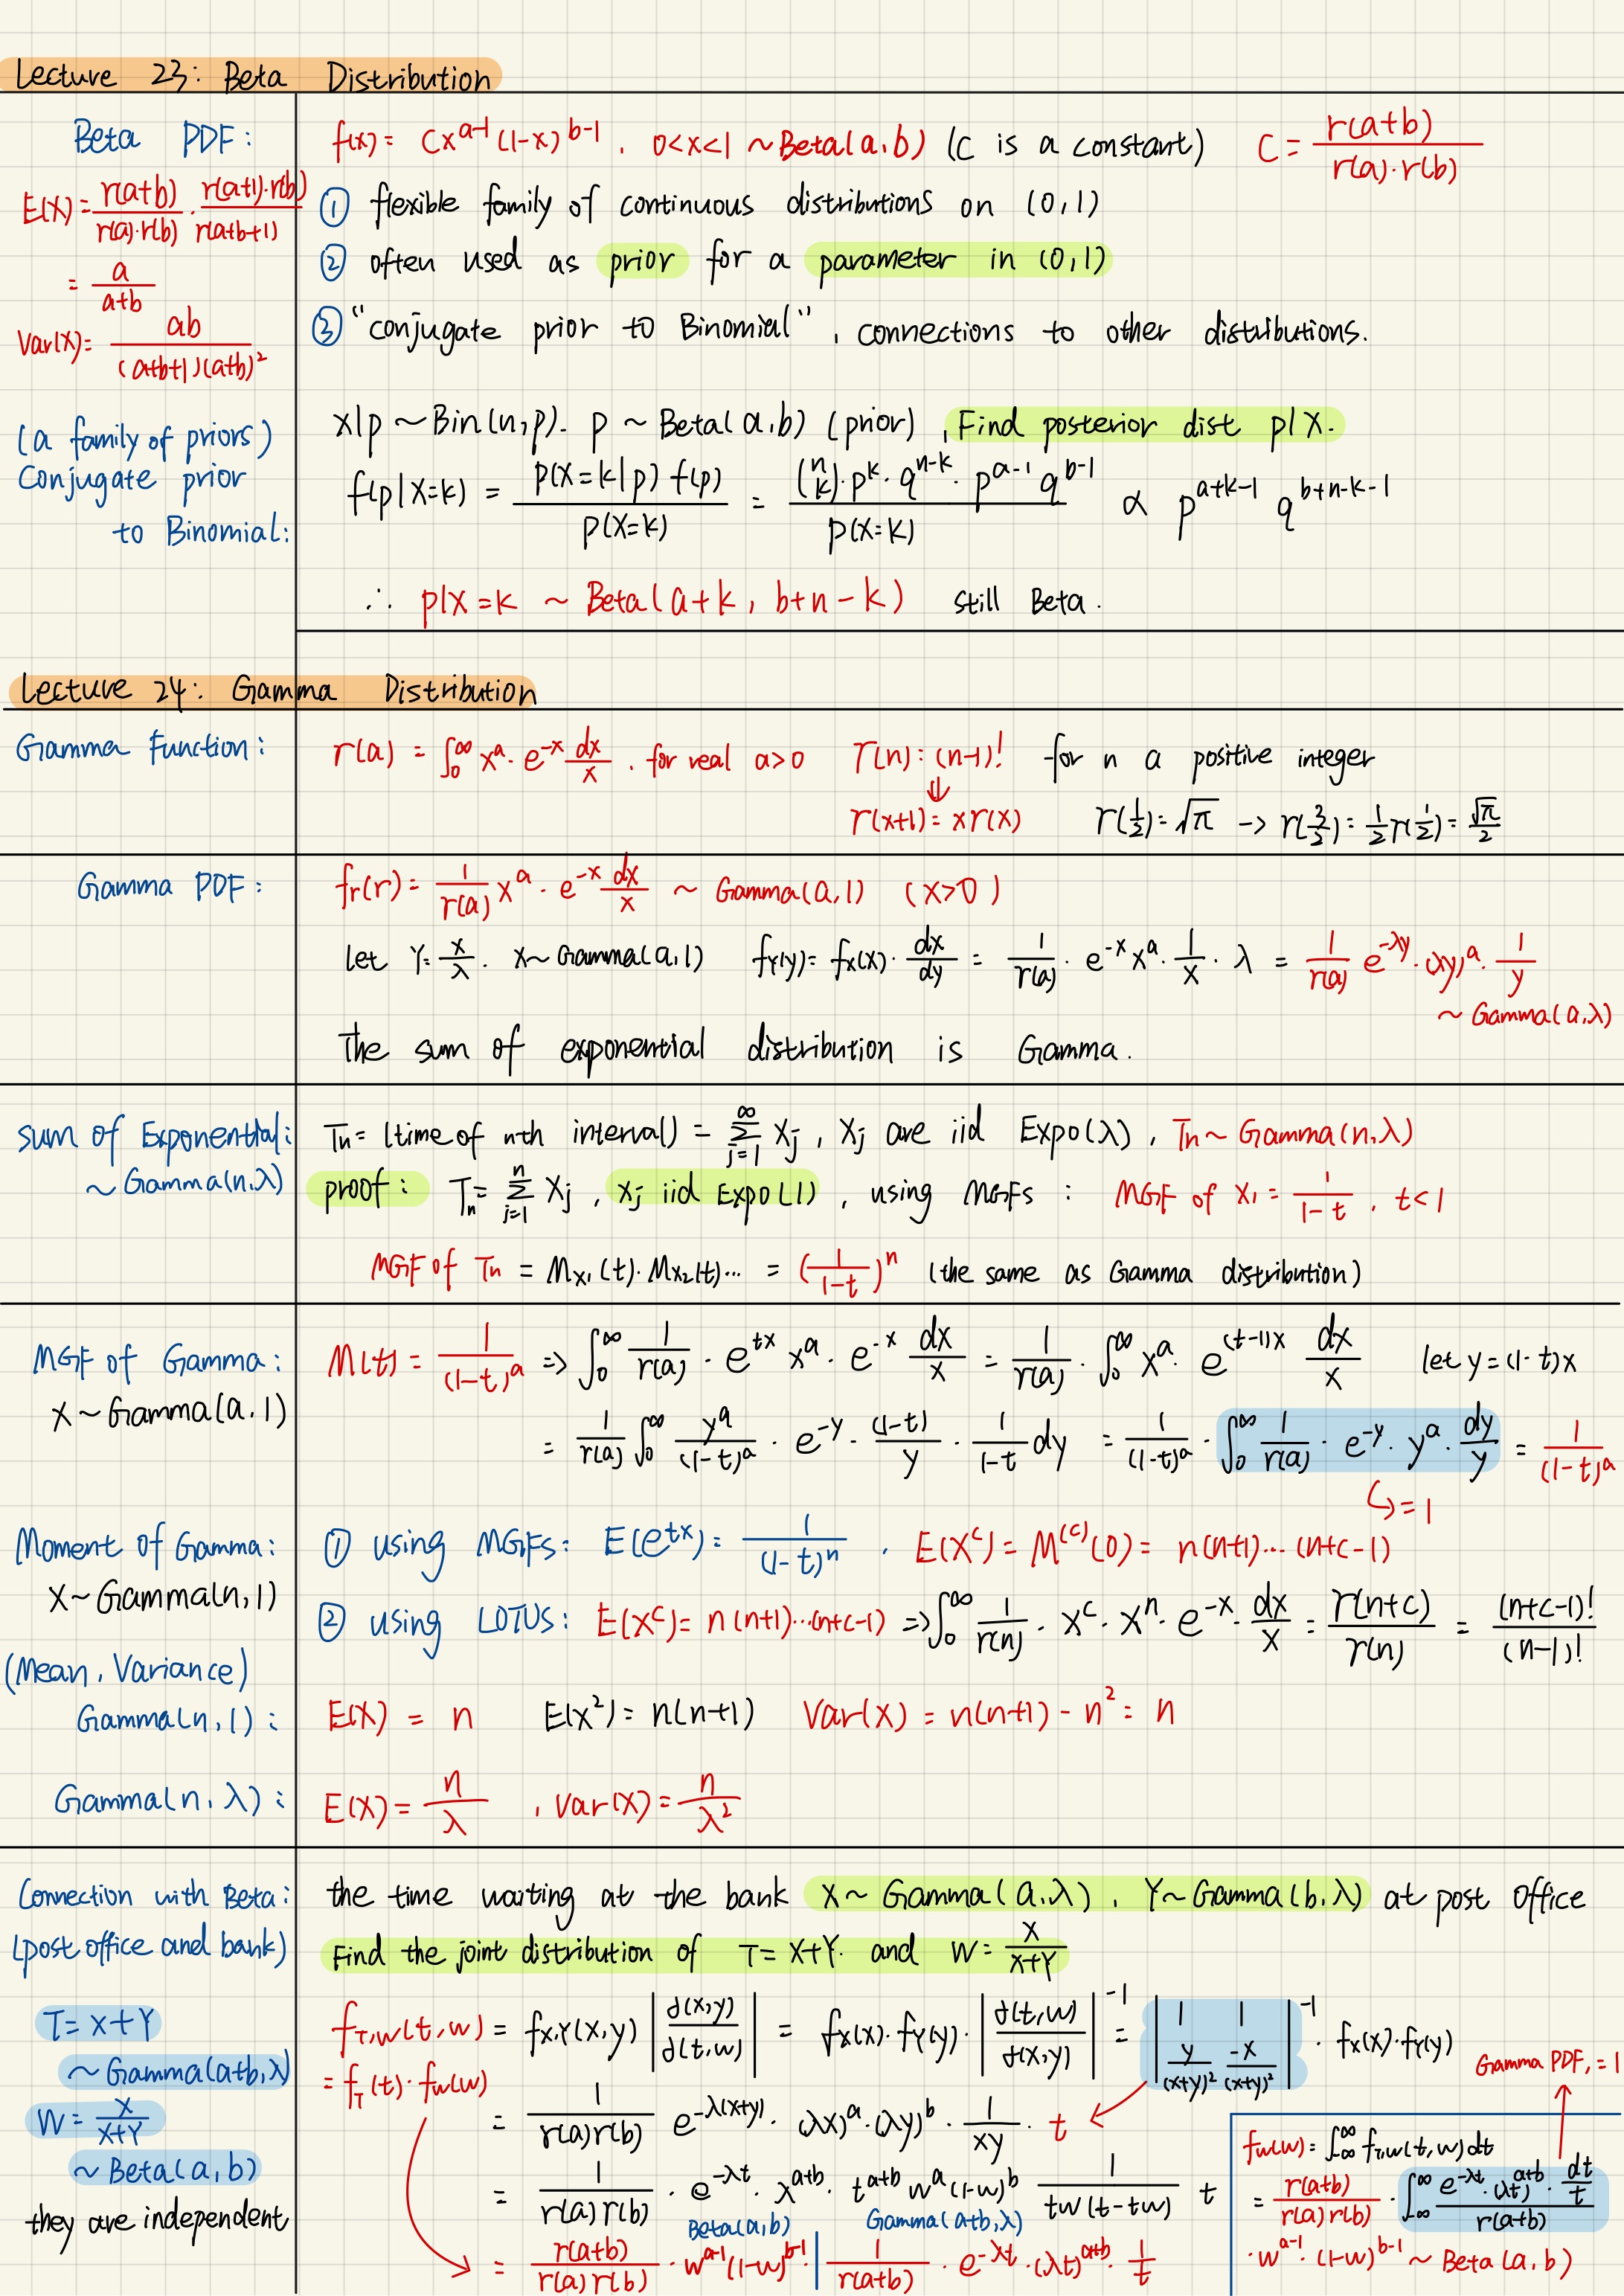 Lecture 23: Beta Distribution
Beta PDF:
f(x) = Cx^{a-1}(1-x)^{b-1}, 0<x<1 ~Beta(a,b) (C is a constant) C = r(a+b) / r(a)·r(b)
E(X) = r(a+b) / r(a)·r(b) · r(a+1)·r(b) / r(a+b+1)
= a / a+b
Var(X) = ab / (a+b+1)(a+b)²
① flexible family of continuous distributions on (0,1)
② often used as prior for a parameter in (0,1)
③ "conjugate prior to Binomial", connections to other distributions.
(a family of priors)
Conjugate prior
to Binomial:
x|p ~ Bin(n,p). p ~ Beta(a,b) (prior), Find posterior dist p|X.
f(p|X=k) = p(X=k|p) f(p) / p(X=k) = (n k)·p^k·q^{n-k}·p^{a-1} q^{b-1} / p(X=k) ∝ p^{a+k-1} q^{b+n-k-1}
∴ p|X=k ~ Beta(a+k, b+n-k) still Beta.
Lecture 24: Gamma Distribution
Gamma function:
r(a) = ∫₀^∞ x^a·e^{-x} dx/x, for real a>0 r(n): (n-1)! for n a positive integer
⇓
r(x+1) = x r(x) r(1/2) = √π -> r(3/2) = 1/2 r(1/2) = √π/2
Gamma PDF:
fr(r) = 1/r(a) x^a·e^{-x} dx/x ~ Gamma(a,1) (x>0)
let Y = x/λ. x~Gamma(a,1) fY(y) = fx(x)·dx/dy = 1/r(a)·e^{-x} x^a·1/x·λ = 1/r(a) e^{-λy}·(λy)^a·1/y
~ Gamma(a,λ)
The sum of exponential distribution is Gamma.
sum of Exponential:
~ Gamma(n,λ)
Tn = (time of nth interval) = Σ_{j=1}^∞ Xj, Xj are iid Expo(λ), Tn~ Gamma(n,λ)
proof: Tn = Σ_{j=1}^n Xj, xj iid Expo(1), using MGFs: MGF of X₁ = 1/1-t, t<1
MGF of Tn = Mx₁(t)·Mx₂(t)··· = (1/1-t)^n (the same as Gamma distribution)
MGF of Gamma:
X ~ Gamma(a,1)
M(t) = 1/(1-t)^a => ∫₀^∞ 1/r(a)·e^{tx} x^a·e^{-x} dx/x = 1/r(a)·∫₀^∞ x^a·e^{(t-1)x} dx/x let y = (1-t)x
= 1/r(a) ∫₀^∞ y^a/(1-t)^a·e^{-y}·(1-t)/y·1/1-t dy = 1/(1-t)^a·∫₀^∞ 1/r(a)·e^{-y}·y^a·dy/y = 1/(1-t)^a
↳ = 1
Moment of Gamma:
X~Gamma(n,1)
① using MGFs: E(e^{tx}) = 1/(1-t)^n, E(X^c) = M^{(c)}(0) = n(n+1)···(n+c-1)
② using LOTUS: E(X^c) = n(n+1)···(n+c-1) => ∫₀^∞ 1/r(n)·x^c·x^n·e^{-x}·dx/x = r(n+c)/r(n) = (n+c-1)!/(n-1)!
(Mean, Variance)
Gamma(n,1):
E(X) = n E(x²) = n(n+1) Var(X) = n(n+1) - n² = n
Gamma(n,λ):
E(X) = n/λ, Var(X) = n/λ²
Connection with Beta:
(post office and bank)
the time waiting at the bank X~Gamma(a,λ), Y~Gamma(b,λ) at post office
Find the joint distribution of T = X+Y. and W = X/X+Y
T = X+Y
~ Gamma(a+b,λ)
W = X/X+Y
~ Beta(a,b)
they are independent
f_{T,W}(t,w) = f_{X,Y}(x,y) |∂(x,y)/∂(t,w)| = fx(x)·fY(y)·|∂(t,w)/∂(x,y)|^{-1} = |1 1 y/(x+y)² -x/(x+y)²|^{-1}·fx(x)·fY(y)
= f_T(t)·f_W(w)
= 1/r(a)r(b) e^{-λ(x+y)}·(λx)^a·(λy)^b·1/xy·t
= 1/r(a)r(b)·e^{-λt}·λ^{a+b}·t^{a+b} w^a (1-w)^b 1/tw(t-tw) t
Beta(a,b) Gamma(a+b,λ)
= r(a+b)/r(a)r(b)·w^{a-1}(1-w)^{b-1}·| 1/r(a+b)·e^{-λt}·(λt)^{a+b}·1/t
Gamma PDF, = 1
fw(w) = ∫_{-∞}^∞ f_{T,W}(t,w)dt
= r(a+b)/r(a)r(b)·∫_{-∞}^∞ e^{-λt}·(λt)^{a+b}·dt/t / r(a+b)
·w^{a-1}·(1-w)^{b-1} ~ Beta(a,b)